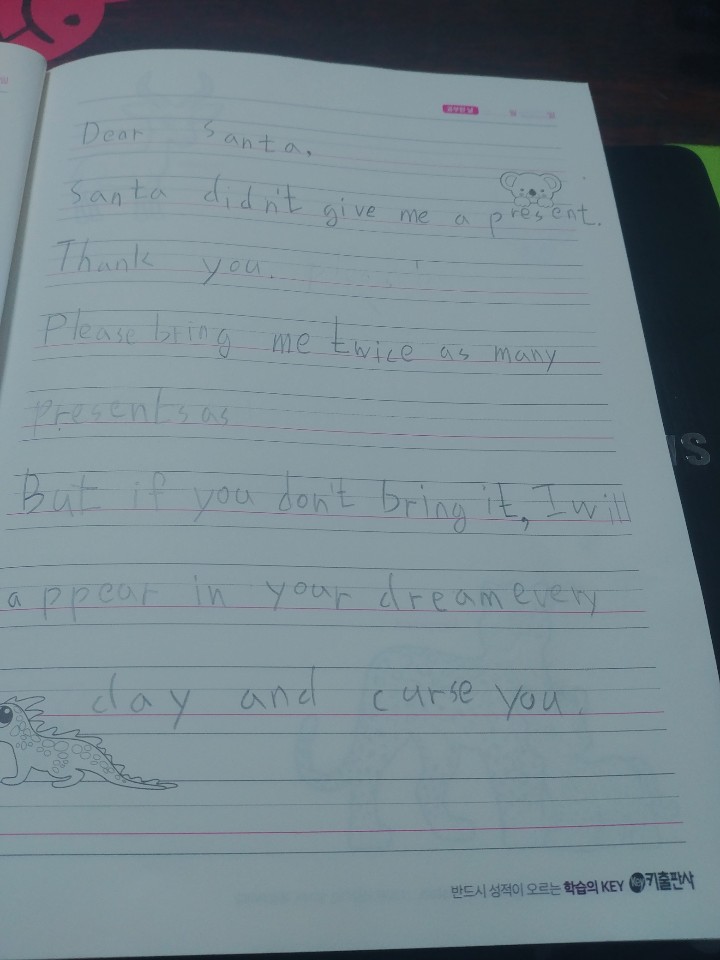 Dear Santa,
Santa didn't give me a present.
Thank you.
Please bring me twice as many
presents as
But if you don't bring it, I will
appear in your dream every
day and curse you.
반드시 성적이 오르는 학습의 KEY Key 키출판사